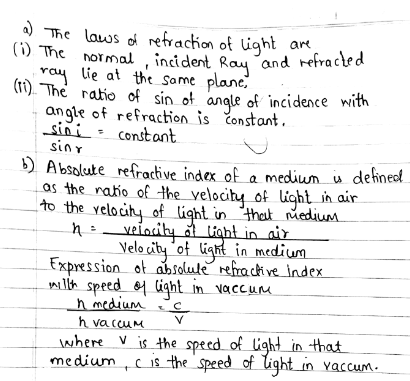 a) The laws of refraction of light are
(i) The normal, incident Ray and refracted
ray lie at the same plane,
(ii) The ratio of sin of angle of incidence with
angle of refraction is constant.
sin i = constant
sin r
b) Absolute refractive index of a medium is defined
as the ratio of the velocity of light in air
to the velocity of light in that medium
n = velocity of light in air
Velocity of light in medium
Expression of absolute refractive index
with speed of light in vaccum
n medium = c
n vaccum v
where v is the speed of light in that
medium, c is the speed of light in vaccum.